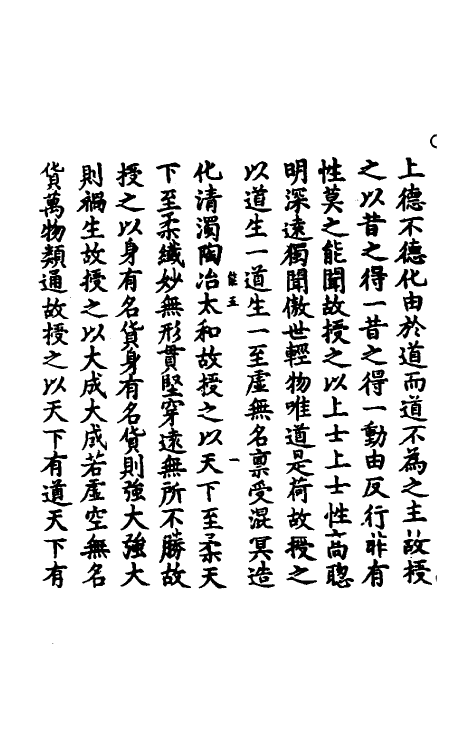 上德不德化由於道而道不為之主故授
之以昔之得一昔之得一動由反行非有
性莫之能聞故授之以上士上士性高聰
明深遠獨聞傲世輕物唯道是荷故授之
以道生一道生一至虛無名禀受混冥造
一
化清濁陶冶太和故授之以天下至柔天
下至柔纎妙無形貫堅穿遠無所不勝故
授之以身有名貨身有名貨則強大強大
則禍生故授之以大成大成若虛空無名
貨萬物類通故授之以天下有道天下有